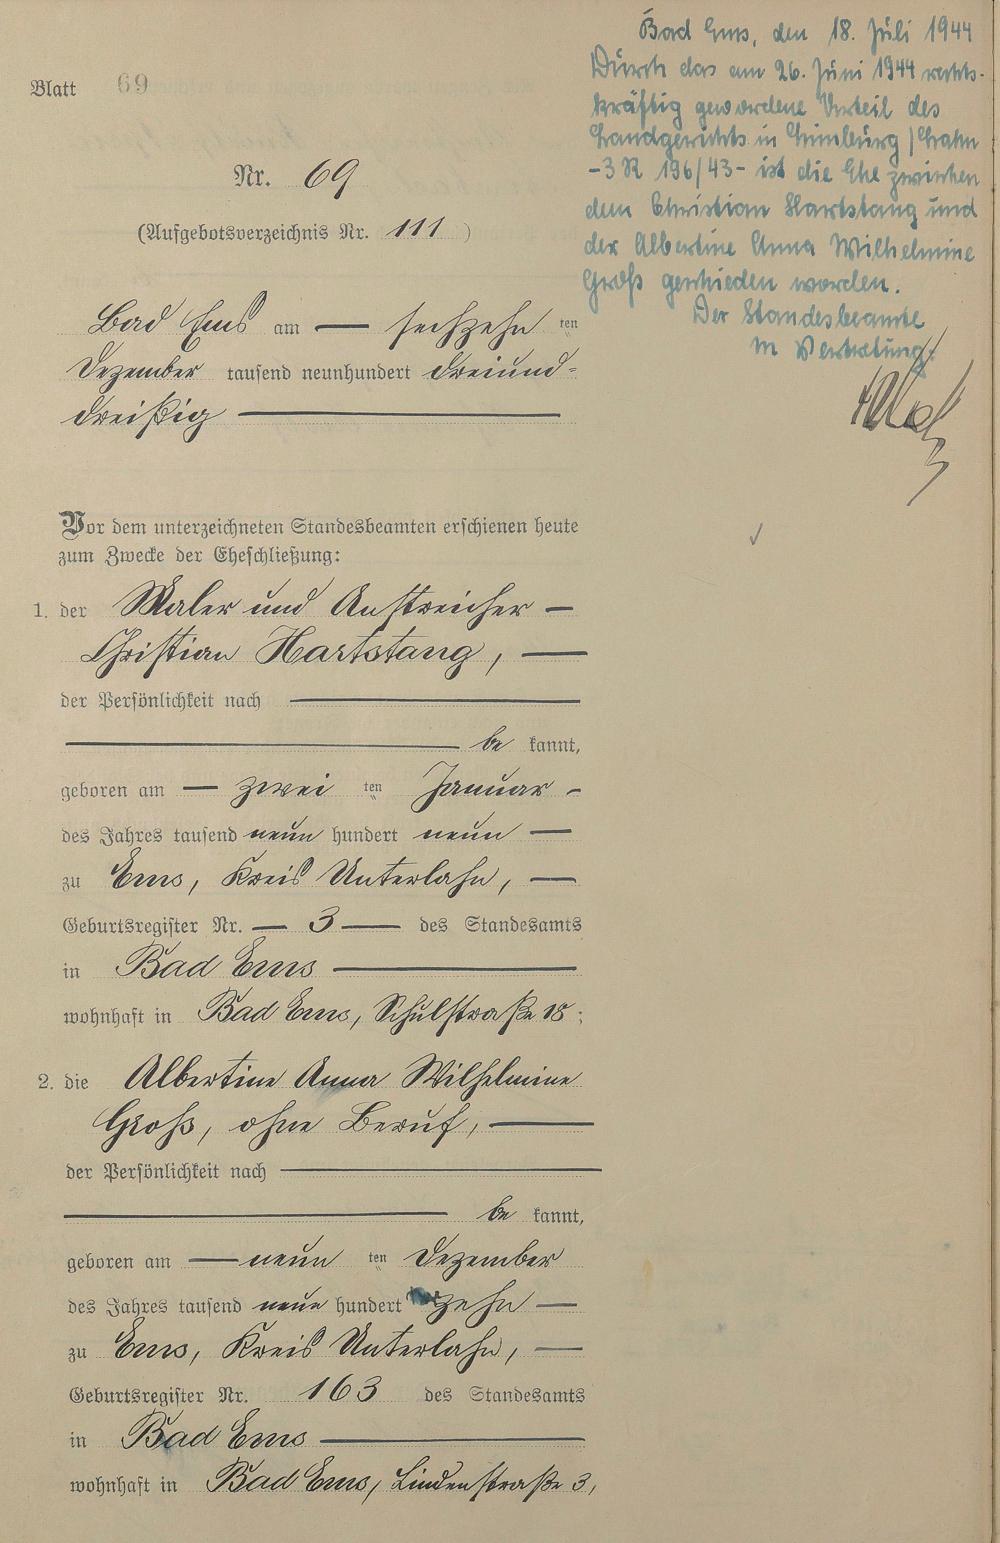 Blatt 69
Nr. 69
(Aufgebotsverzeichnis Nr. 111)
Bad Ems am — sechzehn ten
Dezember tausend neunhundert dreiund-
dreißig —
Vor dem unterzeichneten Standesbeamten erschienen heute
zum Zwecke der Eheschließung:
1. der Maler und Anstreicher —
Christian Hartstang, —
der Persönlichkeit nach —
— be kannt,
geboren am — zwei ten Januar -
des Jahres tausend neun hundert neun —
zu Ems, Kreis Unterlahn, —
Geburtsregister Nr. — 3 — des Standesamts
in Bad Ems —
wohnhaft in Bad Ems, Schulstraße 18;
2. die Albertine Anna Wilhelmine
Groß, ohne Beruf, —
der Persönlichkeit nach —
— be kannt,
geboren am — neun ten Dezember
des Jahres tausend neun hundert zehn —
zu Ems, Kreis Unterlahn, —
Geburtsregister Nr. 163 des Standesamts
in Bad Ems —
wohnhaft in Bad Ems, Lindenstraße 3,
Bad Ems, den 18. Juli 1944
Durch das am 26. Juni 1944 rechts-
kräftig gewordene Urteil des
Landgerichts in Limburg/Lahn
-3 R 196/43- ist die Ehe zwischen
dem Christian Hartstang und
der Albertine Anna Wilhelmine
Groß geschieden worden.
Der Standesbeamte
In Vertretung: